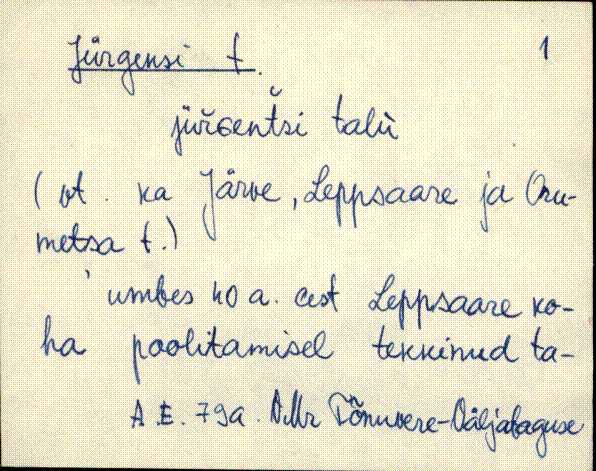 Jürgensi t. 1
jür̆ɢent̆si talù
(vt. ka Järve, Leppsaare ja Oru-
metsa t.)
umbes 40 a. eest Leppsaare ko-
ha poolitamisel tekkinud ta-
A.E. 79a. VMr Tõnuvere-Väljataguse